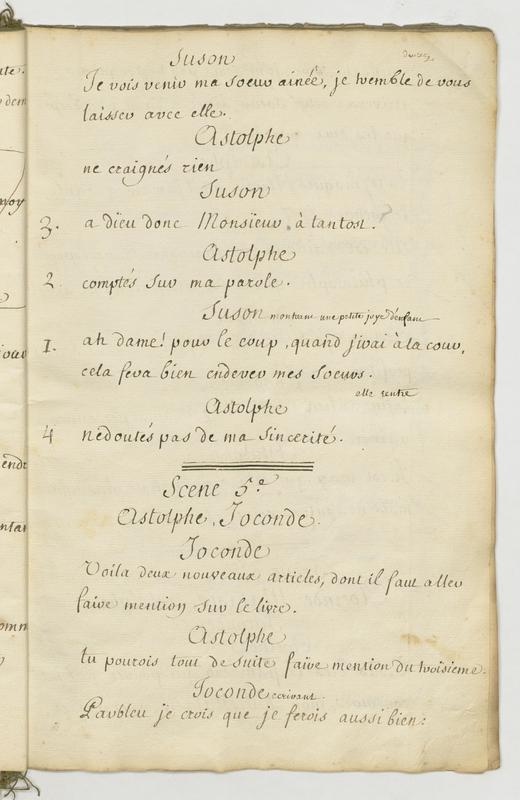 Suson
Je vois venir ma soeur ainée, je tremble de vous
laisser avec elle.
Astolphe
ne craignés rien
Suson
3. a dïeu donc Monsïeur, à tantost.
Astolphe
2. comptés sur ma parole.
Suson montrant une petite joye d'enfant
1. ah dame! pour le coup, quand j'irai à la cour,
cela fera bien endever mes soeurs.
elle rentre
Astolphe
4 ne doutés pas de ma sincerité.
Scene 5.e
Astolphe, Joconde.
Joconde
Voila deux nouveaux articles, dont il faut aller
faire mention sur le livre.
Astolphe
tu pourois tout de suite faire mention du troisieme.
Joconde ecrivant.
Parbleu je crois que je ferois aussi bien: